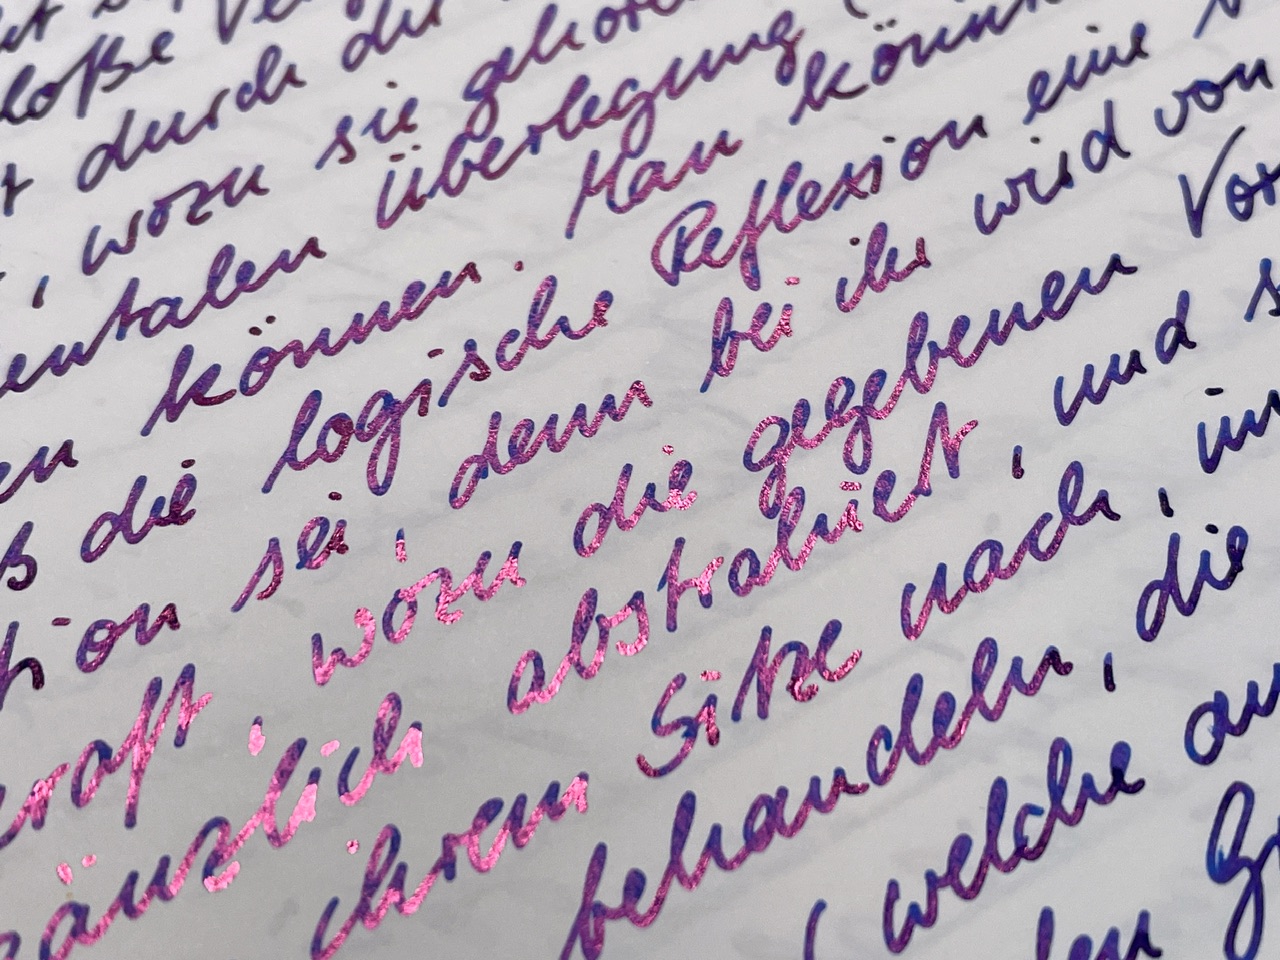 loße Ve
t durch die
, wozu sie gehören
entalen Überlegung (
en können. Man könnt
ß die logische Reflexion eine
ion sei, denn bei ihr wird von
kraft, wozu die gegebenen Vor
gänzlich abstrahiert, und s
ihrem Sitze nach, im
behandeln, die
(welche au